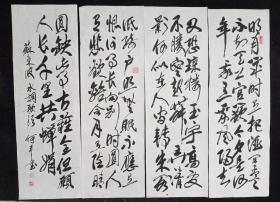 明月幾時有把酒問青天
不知天上宮闕今夕是何
年我欲乘風歸去
又恐瓊樓玉宇高處
不勝寒起舞弄清
影何似在人間轉朱閣
低綺户照無眠不應有
恨何事長向别時圓人
有悲歡離合月有陰晴
圓缺此事古難全但願
人長久千里共嬋娟
蘇東坡水調歌頭